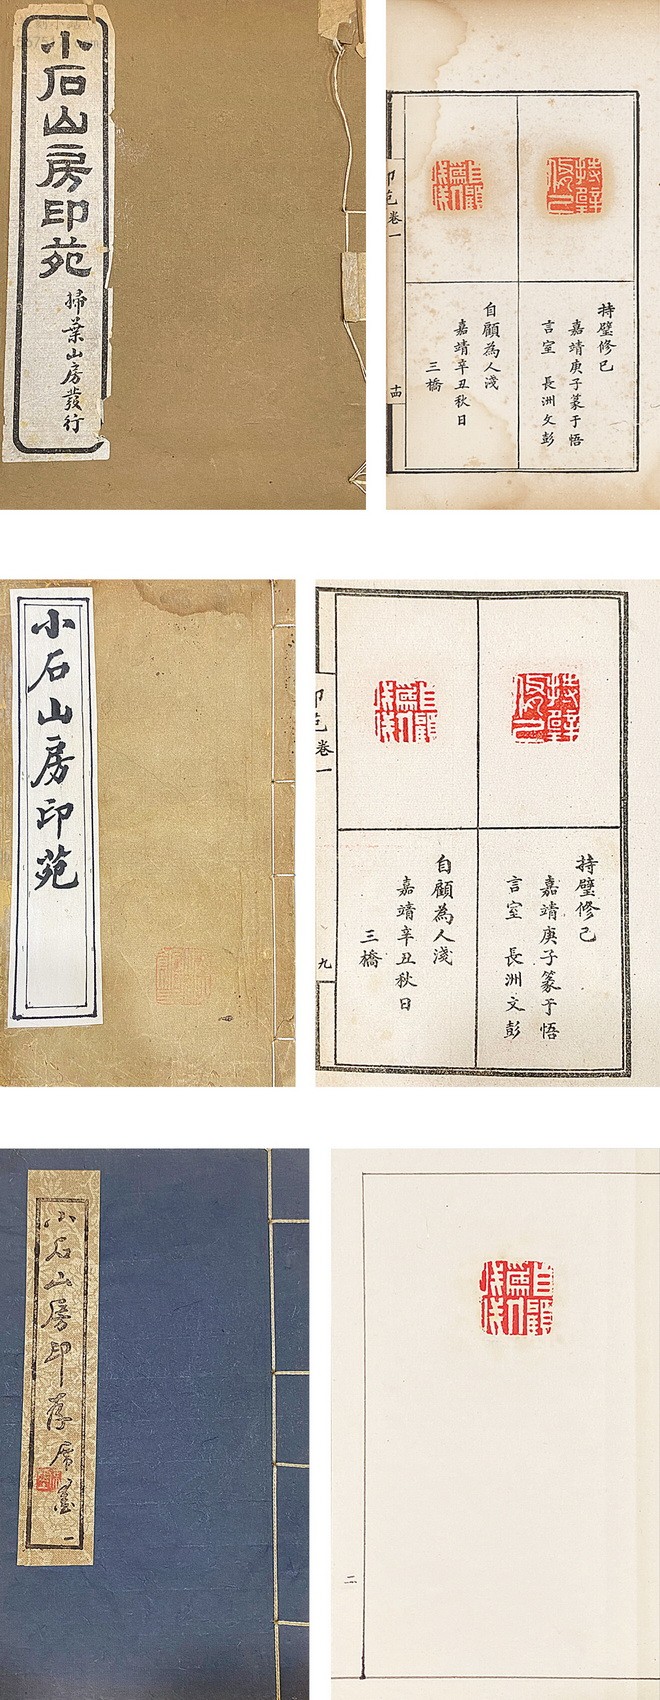 小石山房印苑
掃葉山房發行
印苑卷一
十四
持璧修己
嘉靖庚子篆于悟
言室 長洲文彭
自顧為人淺
嘉靖辛丑秋日
三橋
小石山房印苑
印苑卷一
九
持璧修己
嘉靖庚子篆于悟
言室 長洲文彭
自顧為人淺
嘉靖辛丑秋日
三橋
小石山房印存
一
二